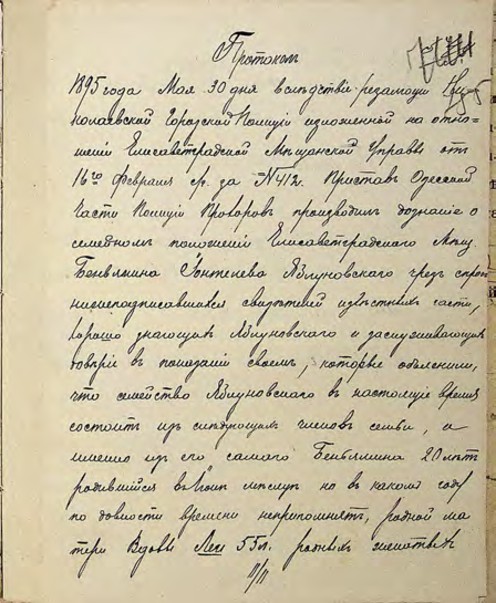 Протоколъ
1895 года Мая 30 дня вслѣдствіе резолюціи Ни-
колаевской Городской Полиціи изложенной на отно-
шеніи Елисаветградской Мѣщанской Управы отъ
16го февраля ср. за № 412. Приставъ Одесской
Части Полиціи Прохоровъ производилъ дознаніе о
семейномъ положеніи Елисаветградскаго Мѣщ
Беньямина Яблуновскаго чрезъ спросъ
нижеподписавшихся свидѣтелей извѣстныхъ части,
хорошо знающихъ Яблуновскаго и заслуживающихъ
довѣріе въ показаніи своемъ, которые объяснили,
что семейство Яблуновскаго въ настоящіе время
состоитъ изъ слѣдующихъ членовъ семьи, а
именно изъ его самаго Беньямина 20 лѣтъ
родившійся въ мѣсяцѣ но въ какомъ году
по давности времени неприпомнятъ, родной ма-
тери Вдовы Леи 55 л. родныхъ